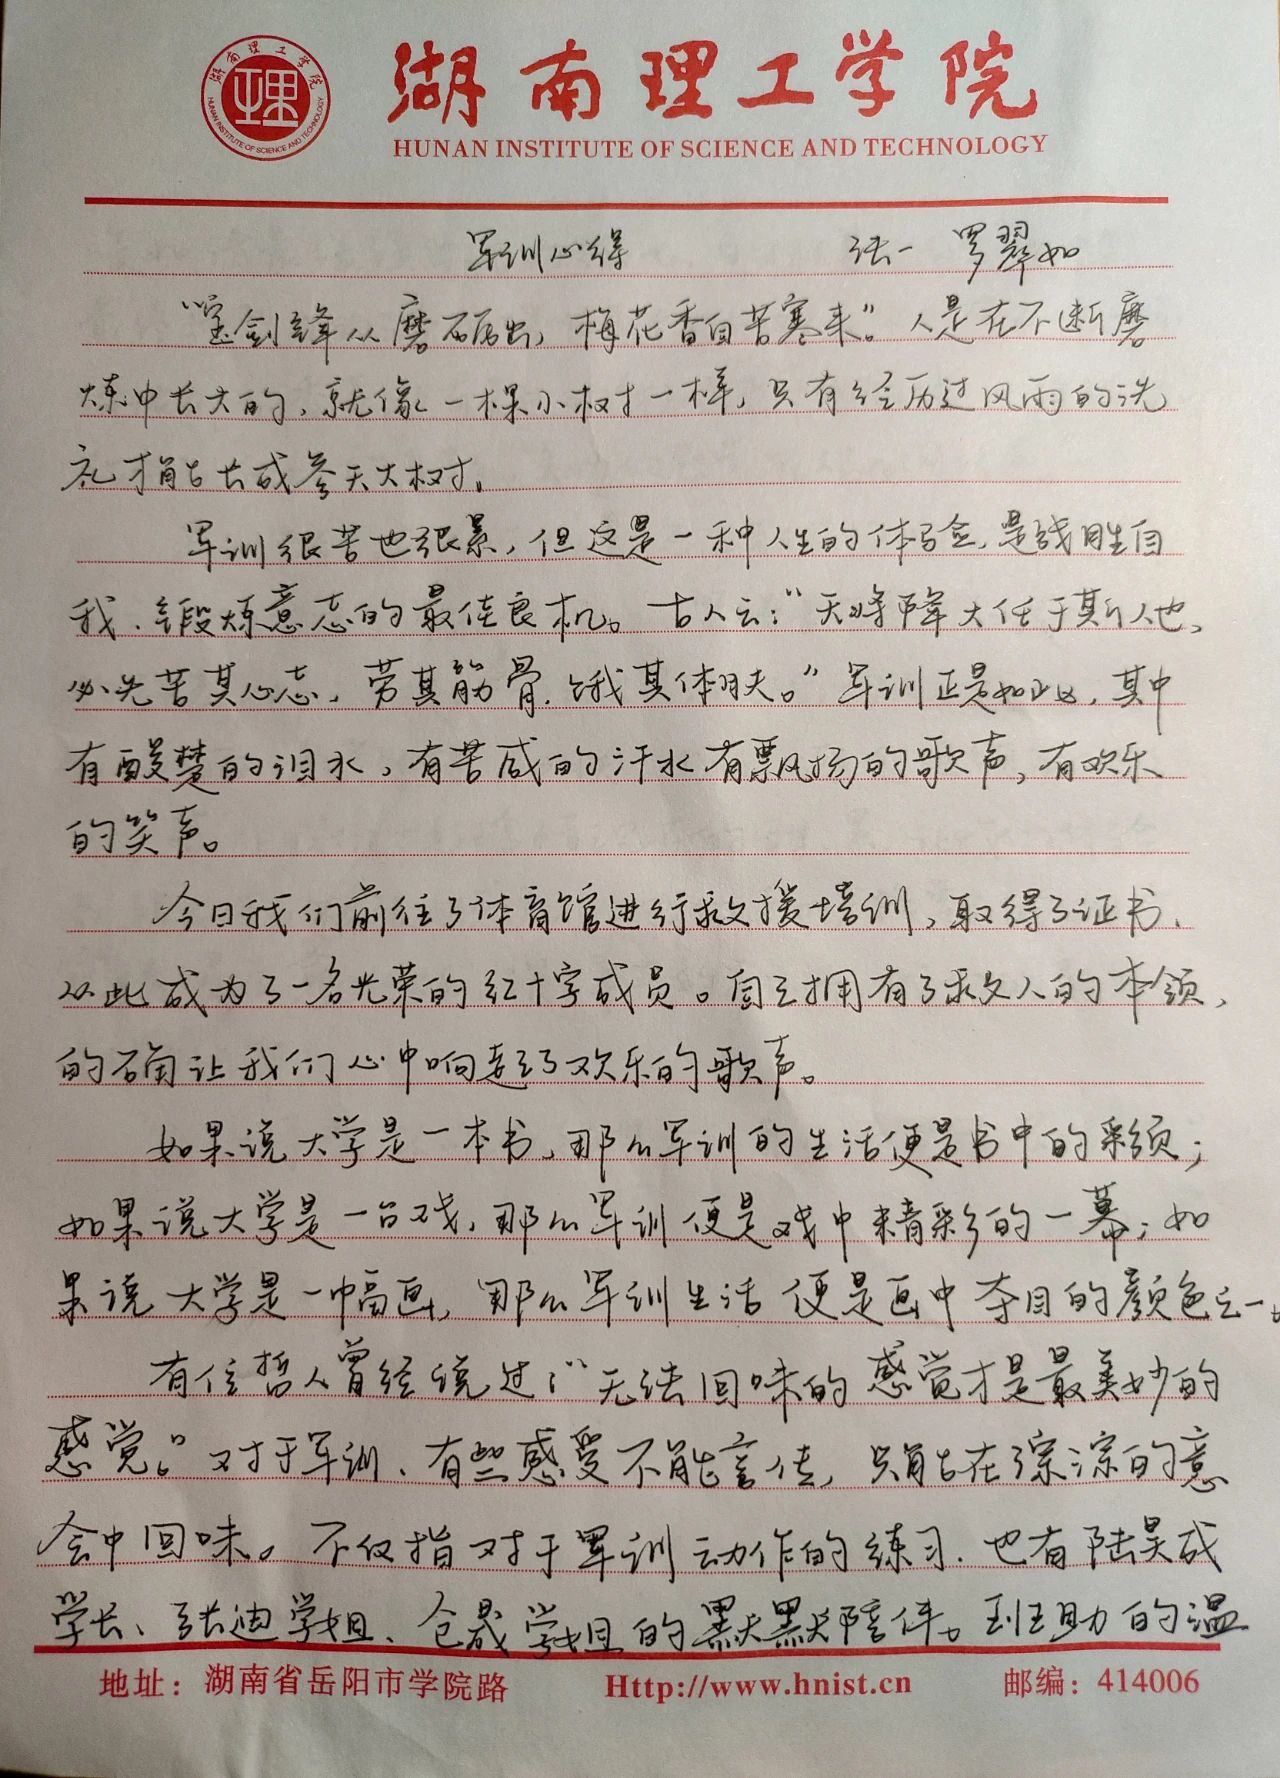 湖南理工学院
HUNAN INSTITUTE OF SCIENCE AND TECHNOLOGY
军训心得 法一 罗翠如
“宝剑锋从磨砺出，梅花香自苦寒来”。人是在不断磨
炼中长大的，就像一棵小树一样，只有经历过风雨的洗
礼才能长成参天大树。
军训很苦也很累，但这是一种人生的体验，是战胜自
我、锻炼意志的最佳良机。古人云：“天将降大任于斯人也，
必先苦其心志，劳其筋骨，饿其体肤。”军训正是如此，其中
有酸楚的泪水，有苦咸的汗水有飘扬的歌声，有欢乐
的笑声。
今日我们前往了体育馆进行救援培训，取得了证书，
从此成为了一名光荣的红十字成员。自己拥有了救人的本领，
的确让我们心中响起了欢乐的歌声。
如果说大学是一本书，那么军训的生活便是书中的彩页；
如果说大学是一台戏，那么军训便是戏中精彩的一幕；如
果说大学是一幅画，那么军训生活便是画中夺目的颜色之一。
有位哲人曾经说过：“无法回味的感觉才是最美妙的
感觉。”对于军训，有些感受不能言传，只能在深深的意
会中回味。不仅指对于军训动作的练习，也有陆昊成
学长、张迪学姐、仓晟学姐的默默陪伴。班助的温
地址：湖南省岳阳市学院路 Http://www.hnist.cn 邮编：414006